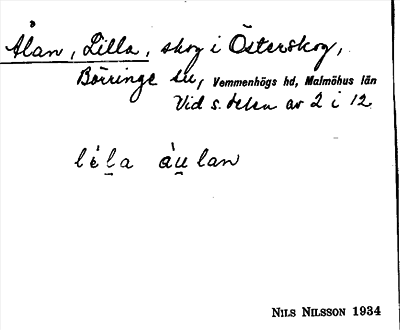 Ålan, Lilla, skog i Österskog,
Börringe sn, Vemmenhögs hd, Malmöhus län
Vid s. delen av 2 i 12
lèḻa àu̱lan
NILS NILSSON 1934